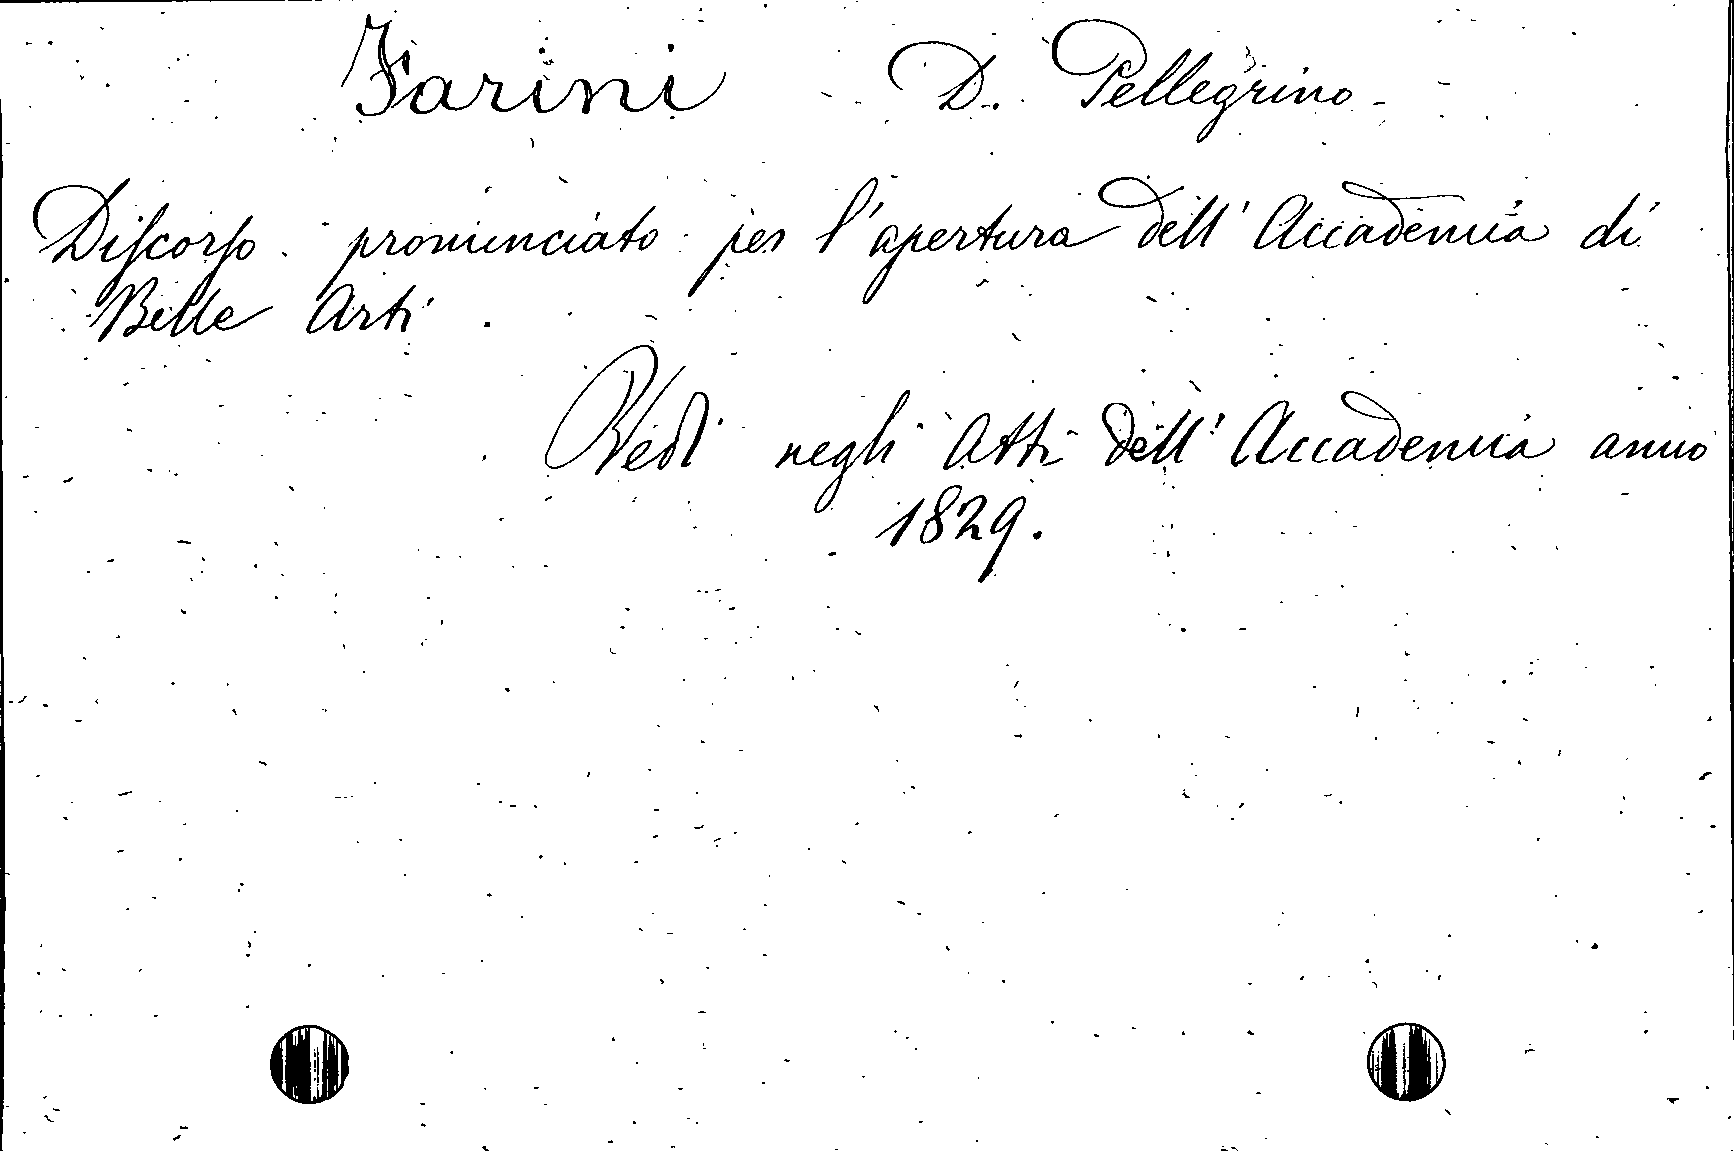 Farini D. Pellegrino
Diſcorſo pronunciato per l'apertura dell' Accademia di
Belle Arti.
Vedi negli Atti dell' Accademia anno
1829.